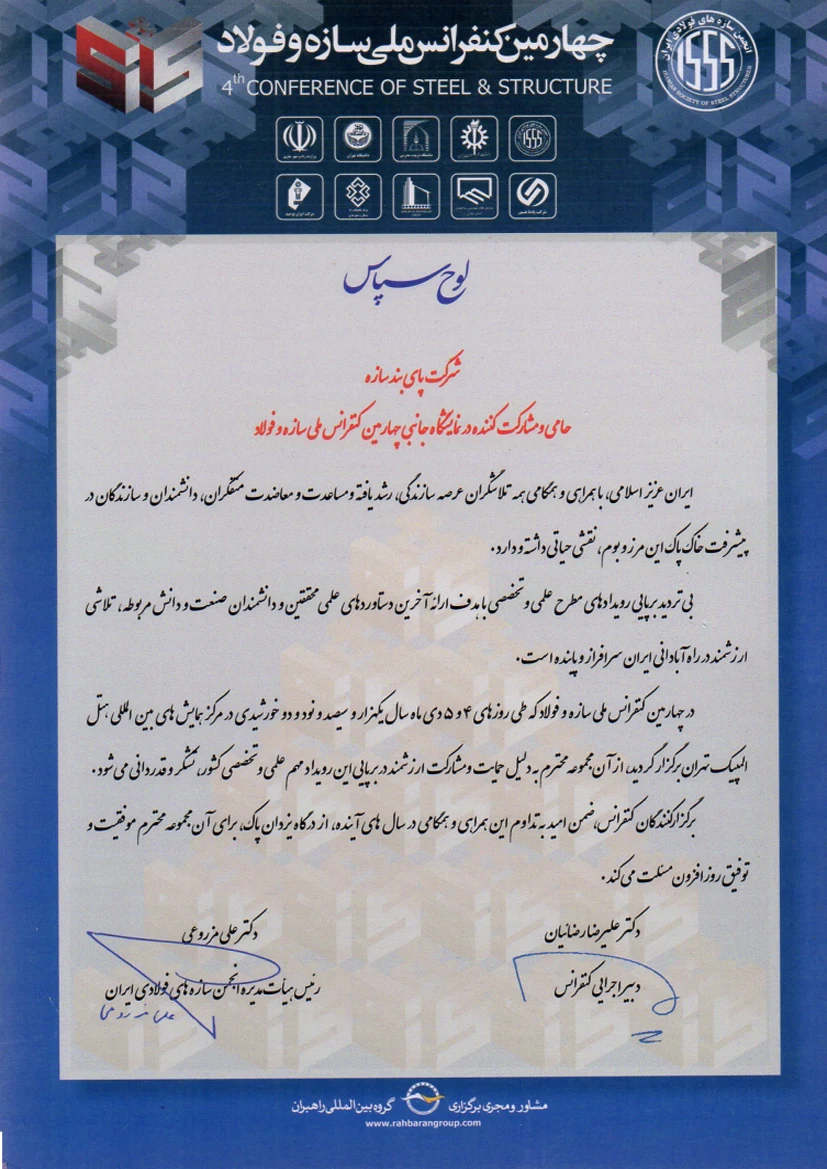 چهارمین کنفرانس ملی سازه و فولاد
4th CONFERENCE OF STEEL & STRUCTURE
انجمن سازه های فولادی ایران
ISSS
IRANIAN SOCIETY OF STEEL STRUCTURES
لوح سپاس
شرکت پای بند سازه
حامی و مشارکت کننده در نمایشگاه جانبی چهارمین کنفرانس ملی سازه و فولاد
ایران عزیز اسلامی، با همراهی و همگامی همه تلاشگران عرصه سازندگی، رشد یافته و مساعدت و معاضدت متفکران، دانشمندان و سازندگان در
پیشرفت خاک پاک این مرز و بوم، نقشی حیاتی داشته و دارد.
بی تردید برپایی رویدادهای مطرح علمی و تخصصی با هدف ارائه آخرین دستاوردهای علمی محققین و دانشمندان صنعت و دانش مربوطه، تلاشی
ارزشمند در راه آبادانی ایران سرافراز و پاینده است.
در چهارمین کنفرانس ملی سازه و فولاد که طی روزهای ۴ و ۵ دی ماه سال یکهزار و سیصد و نود و دو خورشیدی در مرکز همایش های بین المللی هتل
المپیک تهران برگزار گردید، از آن مجموعه محترم به دلیل حمایت و مشارکت ارزشمند در برپایی این رویداد مهم علمی و تخصصی کشور، تشکر و قدردانی می شود.
برگزارکنندگان کنفرانس، ضمن امید به تداوم این همراهی و همگامی در سال های آینده، از درگاه یزدان پاک، برای آن مجموعه محترم موفقیت و
توفیق روز افزون مسئلت می کند.
دکتر علیرضا رضائیان
دبیر اجرایی کنفرانس
دکتر علی مزروعی
رئیس هیأت مدیره انجمن سازه های فولادی ایران
مشاور و مجری برگزاری گروه بین المللی راهبران
www.rahbarangroup.com